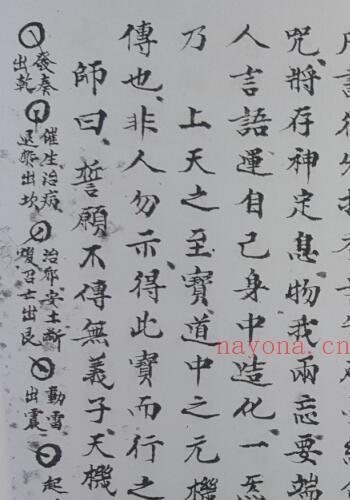 咒將存神定息物我兩忘要端
人言語運自己身中造化一炁
乃上天之至寶道中之元機
傳也非人勿示得此寶而行之
師曰誓願不傳無義子天機
發奏
出乾
催生治病
退煞出坎
治邪安土斷
召亡出艮
動雷
出震
起
nayona.cn